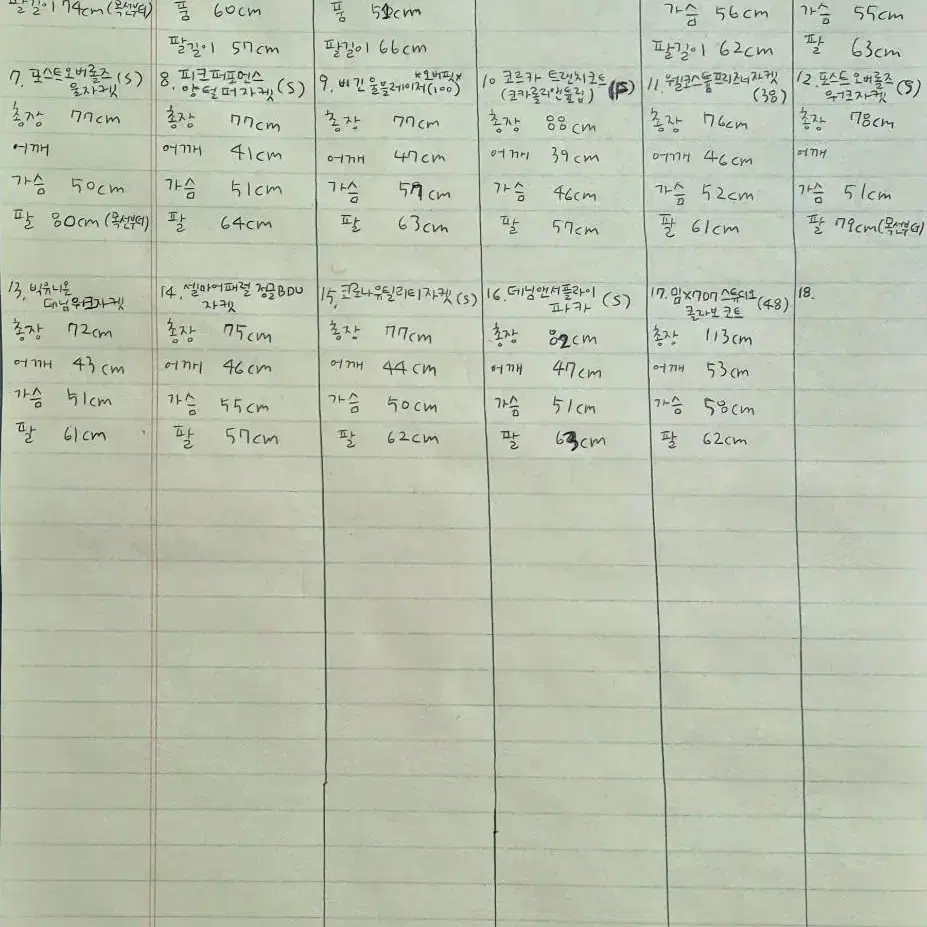 팔길이 74cm (목선부터)
품 60cm
팔길이 57cm
품 51cm
팔길이 66cm
가슴 56cm
팔길이 62cm
가슴 55cm
팔 63cm
7. 포스트오버롤즈 (S)
울자켓
총장 77cm
어깨
가슴 50cm
팔 80cm (목선부터)
8. 피크퍼포먼스
양털퍼자켓 (S)
총장 77cm
어깨 41cm
가슴 51cm
팔 64cm
*오버핏*
9. 비긴울블레이저(100)
총장 77cm
어깨 47cm
가슴 57cm
팔 63cm
10. 코르카 트랜치코트
총장 88cm
어깨 39cm
가슴 46cm
팔 57cm
11. 웨코스툼프리즈너자켓
(38)
총장 76cm
어깨 46cm
가슴 52cm
팔 61cm
12. 포스트 오버롤즈
워크자켓 (S)
총장 78cm
어깨
가슴 51cm
팔 79cm(목선부터)
13. 빅유니온
데님워크자켓
총장 72cm
어깨 43cm
가슴 51cm
팔 61cm
14. 셀마어패럴 정글BDU
자켓
총장 75cm
어깨 46cm
가슴 55cm
팔 57cm
15. 코로나유틸리티자켓 (S)
총장 77cm
어깨 44cm
가슴 50cm
팔 62cm
16. 데님앤서플라이
파카 (S)
총장 82cm
어깨 47cm
가슴 51cm
팔 63cm
17. 밈X707스튜디오
콜라보 코트 (48)
총장 113cm
어깨 53cm
가슴 58cm
팔 62cm
18.